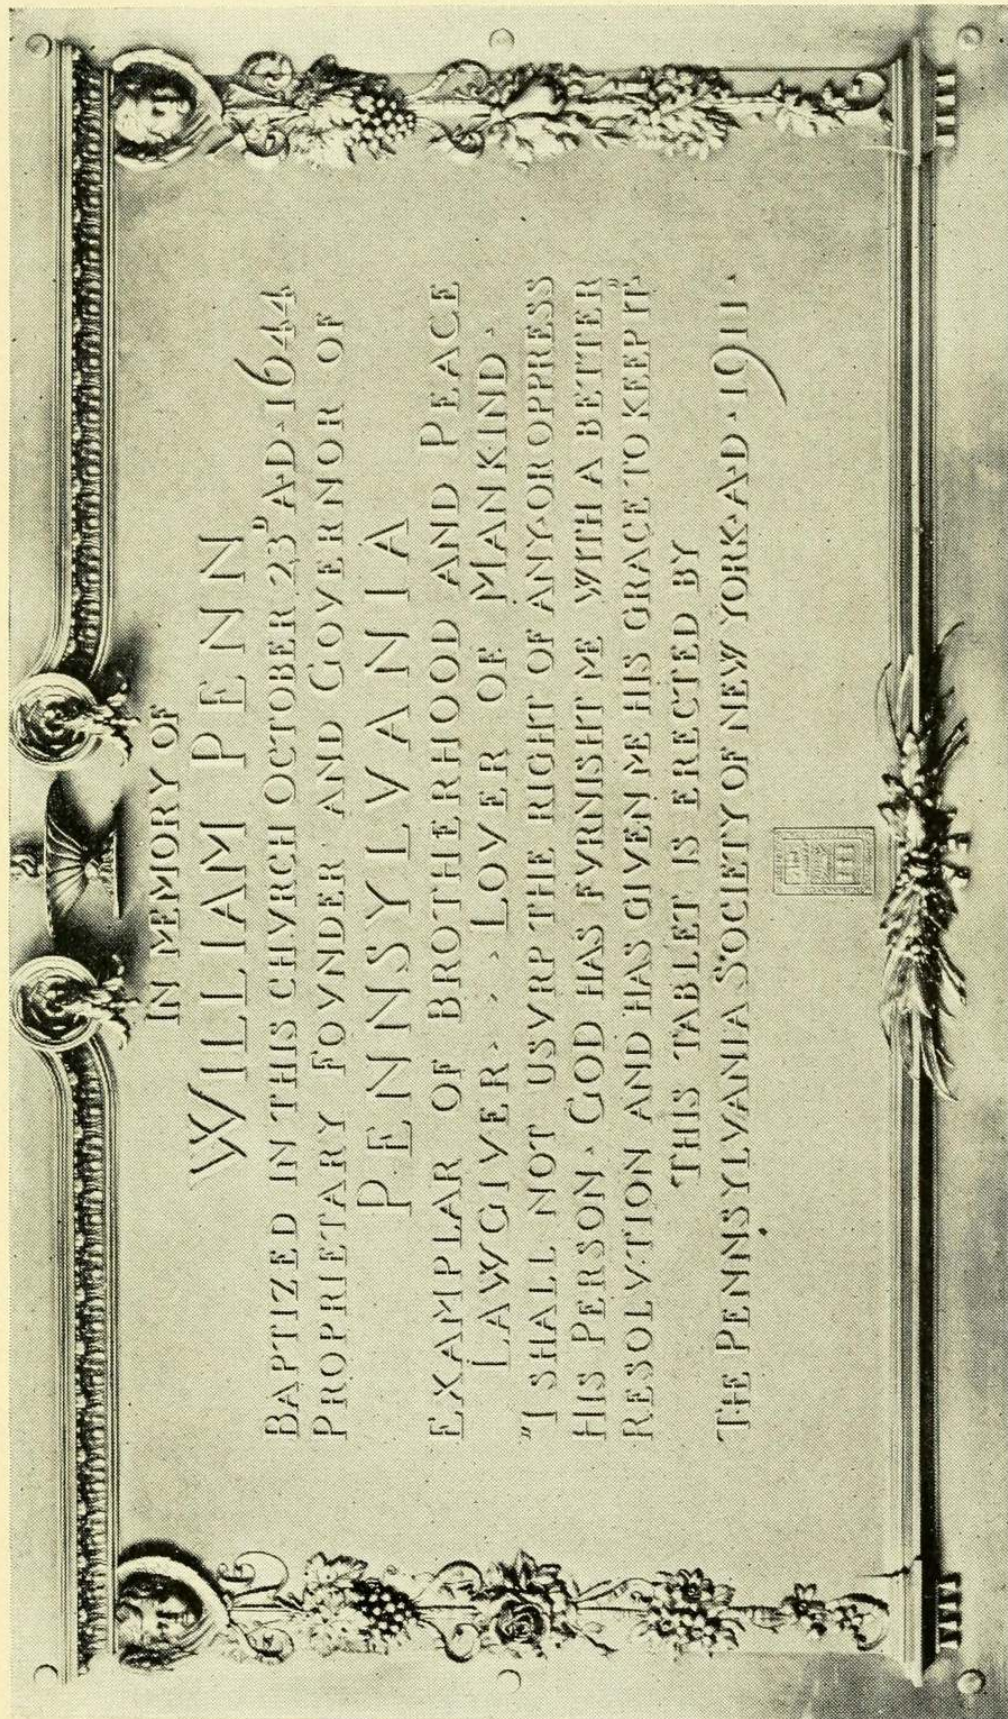 IN MEMORY OF
WILLIAM PENN
BAPTIZED IN THIS CHVRCH OCTOBER 23D A·D·1644
PROPRIETARY FOVNDER AND GOVERNOR OF
PENNSYLVANIA
EXAMPLAR OF BROTHERHOOD AND PEACE
LAWGIVER · · LOVER OF MANKIND ·
"I SHALL NOT USVRP THE RIGHT OF ANY·OR OPPRESS
HIS PERSON · GOD HAS FVRNISHT ME WITH A BETTER
RESOLVTION AND HAS GIVEN ME HIS GRACE TO KEEP IT"
THIS TABLET IS ERECTED BY
THE PENNSYLVANIA SOCIETY OF NEW YORK·A·D·1911·